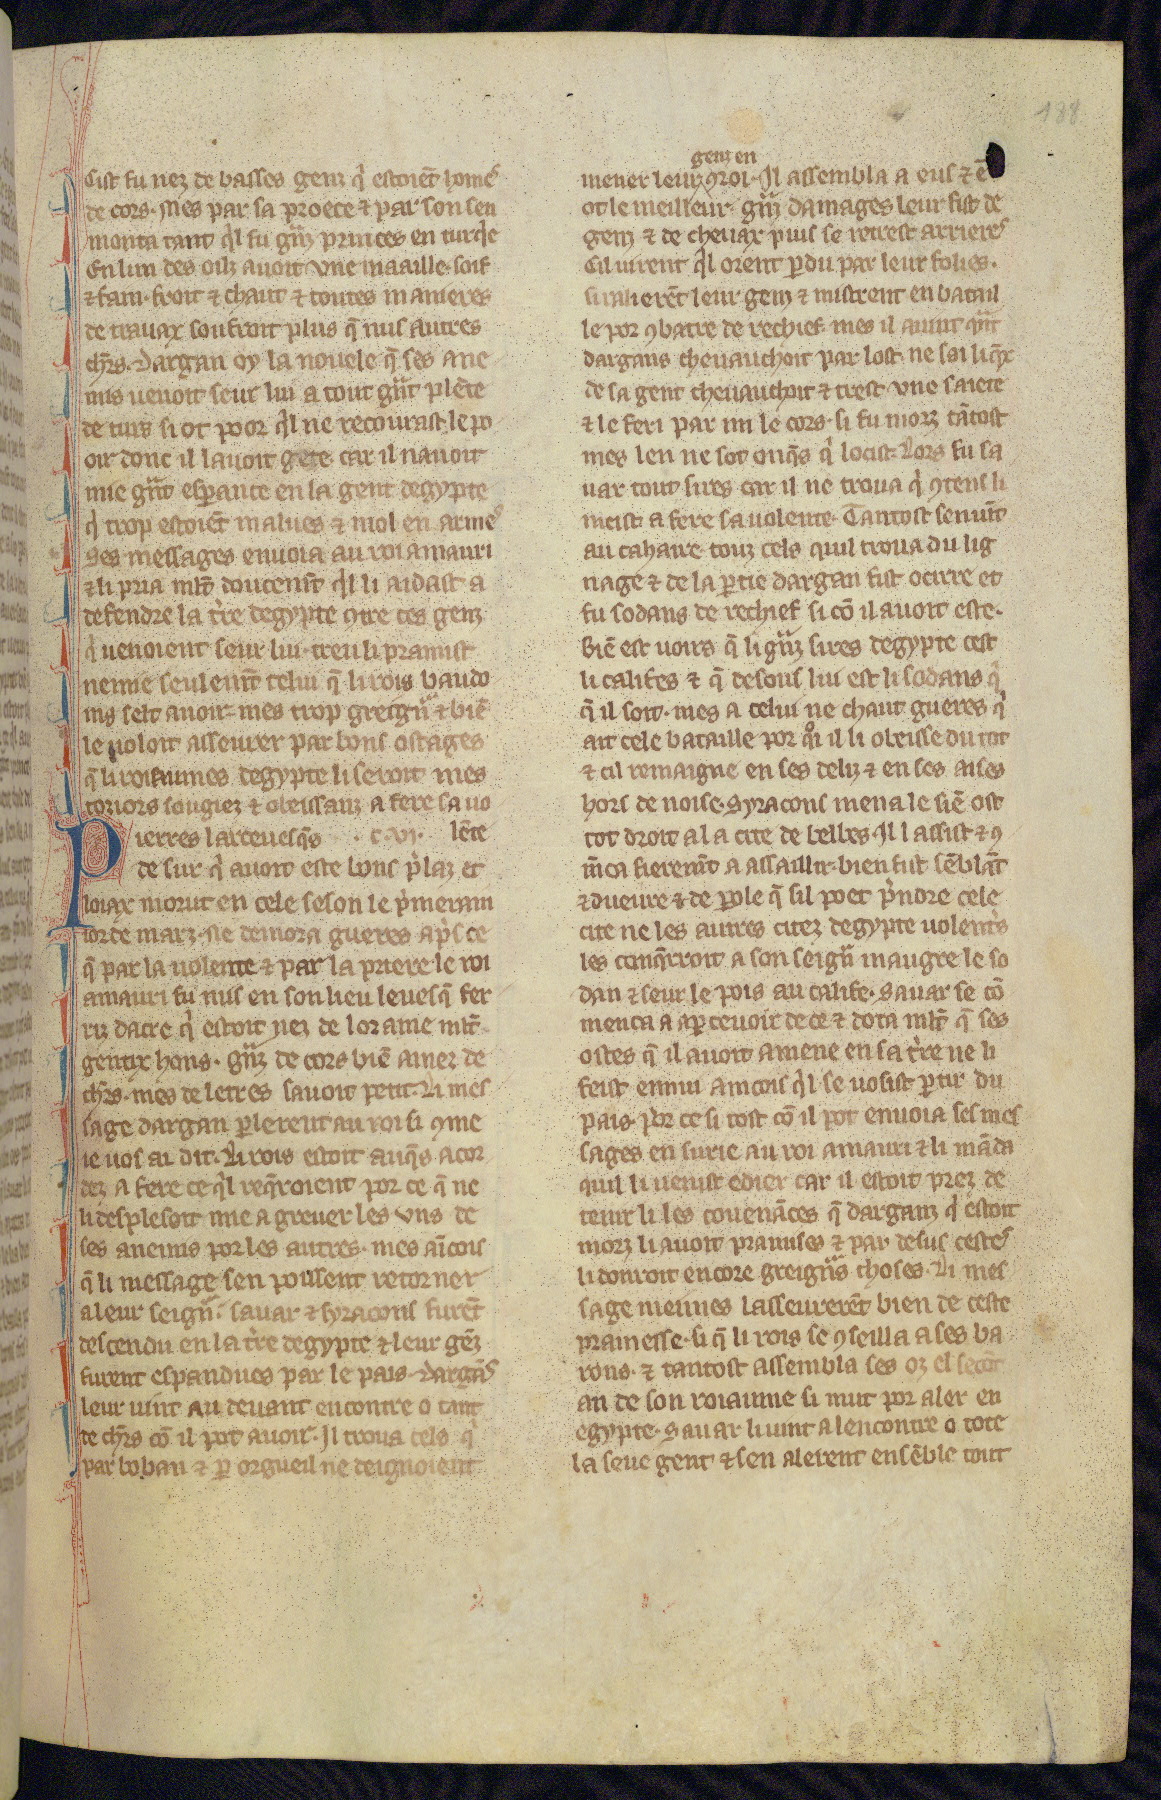 188
Cist fu nez de basses genz q̓ estoiẽt home⁹
de cors. Mes par sa proece ⁊ par son sen
monta tant q̓l fu gñz princes en turq̓e
En lun des oilz auoit vne maaille. soif
⁊ fain. froit ⁊ chaut ⁊ toutes manieres
de trauax soufroit plus q̃ nus autres
ch̅rs. Dargan oy la nouele q̃ ses ane
mis uenoit seur lui a tout gñt plẽte
de turs si ot poor q̓l ne recourast le po
oir donc il lauoit gete. car il nauoit
mie gñt esperance en la gent degypte
q̓ trop estoiẽt malues ⁊ mol en arme⁹
Ses messages enuoia au roi amauri
⁊ li pria ml̅t doucemẽt q̓l li aidast a
defendre la tr̃e degypte ꝯtre ces genz
q̓ uenoient seur lui. treu li pramist
nemie seulemẽt celui q̃ li rois baudo
ins selt auoir. mes trop greign̅ ⁊ biẽ
le uoloit asseurer par bons ostages
q̃ li roiaumes degypte li seroit mes
toziors sougiez ⁊ obeissanz a fere sa uo
Pierres larceuesq̃s . c.vi. lẽte
de sur q̓ auoit este bons p̓laz et
loiax morut en cele seson le p̓merain
ior de marz. Ne demora gueres ap̃s ce
q̃ par la uolente ⁊ par la priere le roi
amauri fu mis en son lieu leuesq̃ fer
riz dacre q̓ estoit nez de loraine ml̅t
gentix hons. gñz de cors biẽ amez de
ch̅rs. mes de letres sauoit petit. Li mes
sage dargan ꝑlerent au roi si ꝯme
ie uos ai dit. Li rois estoit auq̃s acor
dez a fere ce q̓l req̃roient por ce q̃ ne
li desplesoit mie a greuer les vns de
ses anemis por les autres. mes aĩcois
q̃ li message sen poissent retorner
a leur seign̅. sauar ⁊ syracons furẽt
descendu en la tr̃e degypte ⁊ leur gẽz
furent espandues par le pais. Dargã⁹
leur uint au deuant encontre o tant
de ch̅rs cõ il pot auoir. Il troua cels q̓
par boban ⁊ ꝑ orgueil ne deignoient
genz en
mener leur ꝯroi. Il assembla a eus ⁊ ẽ
ot le meilleur. gñz damages leur fist de
genz ⁊ de cheuax puis se retrest arriere⁹
Cil uirent q̓l orent ꝑdu par leur folies.
si ralierẽt leur genz ⁊ mistrent en batail
le por ꝯbatre de rechief. mes il auint qñt
dargans cheuauchoit par lost. ne sai liq̃x
de sa gent cheuauchoit ⁊ trest vne saiete
⁊ le feri par mi le cors. si fu morz tãtost
mes len ne sot onq̃s q̓ locist. Lors fu sa
uar tout sires car il ne troua q̓ ꝯtens li
meist a fere sa uolente. Tantost sen uĩt
au cahaire touz cels quil troua du lig
nage ⁊ de la ꝑtie dargan fist ocirre et
fu sodans de rechief si cõ il auoit este.
Biẽ est uoirs q̃ li gñz sires degypte cest
li califes ⁊ q̃ desous lui est li sodans q̓
q̃ il soit. mes a celui ne chaut gueres q̓
ait cele bataille por qoi il li obeisse du tot
⁊ cil remaigne en ses deliz ⁊ en ses aises
hors de noise. Syracons mena le siẽ ost
tot droit a la cite de belbes. Il lassist ⁊ ꝯ
m̃ca fieremẽt a assaillir. bien fist sẽblãt
⁊ dueure ⁊ de ꝑole q̃ sil poet p̓ndre cele
cite ne les autres citez degypte uolent̓s
les conq̃rroit a son seign̅ maugre le so
dan ⁊ seur le pois au calife. Sauar se cõ
menca a aꝑceuoir de ce ⁊ dota ml̅t q̃ ses
ostes q̃ il auoit amene en sa tr̃e ne li
feist ennui aincois q̓l se uosist ꝑtir du
pais. por ce si tost cõ il pot enuoia ses mes
sages en surie au roi amauri ⁊ li mãda
quil li uenist edier car il estoit prez de
tenir li les couenãces q̃ dargan q̓ estoit
morz li auoit pramises ⁊ par desus ceste⁹
li donroit encore greign̅s choses. Li mes
sage meimes lasseurerẽt bien de ceste
pramesse. si q̃ li rois se ꝯseilla a ses ba
rons. ⁊ tantost assembla ses oz el secõt
an de son roiaume si mut por aler en
egypte. Sauar li uint a lencontre o tote
la seue gent ⁊ sen alerent ensẽble tout